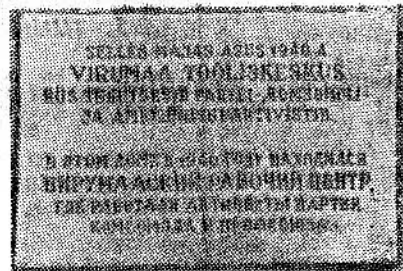 SELLES MAJAS ASUS 1940. A
VIRUMAA TÖÖLISKESKUS
KUS TEGUTSESID PARTEI-, KOMSOMOLI-
JA AMETIÜHINGUAKTIVISTID.
В ЭТОМ ДОМЕ В 1940 ГОДУ НАХОДИЛСЯ
ВИРУМААСКИЙ РАБОЧИЙ ЦЕНТР,
ГДЕ РАБОТАЛИ АКТИВИСТЫ ПАРТИИ
КОМСОМОЛА И ПРОФСОЮЗА.